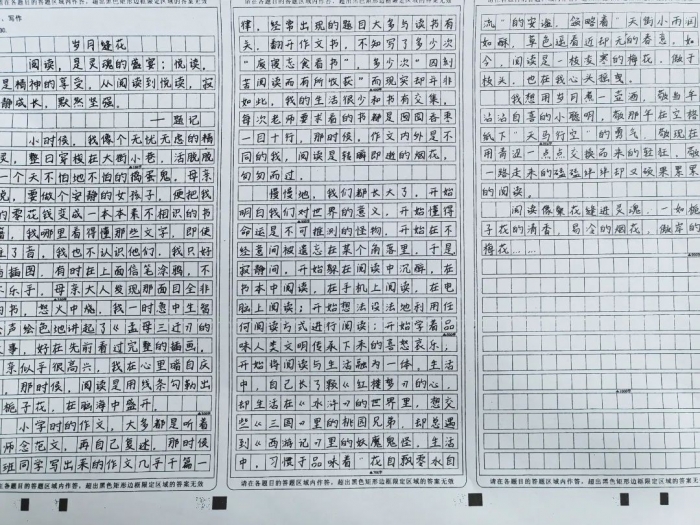 请在各题目的答题区域内作答，超出黑色矩形边框限定区域的答案无效
写作
岁月缝花
阅读，是灵魂的盛宴；悦读，
是精神的享受，从阅读到悦读，寂
静成长，默然坚强。
—题记
小时候，我像个无忧无虑的精
灵，整日穿梭在大街小巷，活脱脱
一个天不怕地不怕的捣蛋鬼，母亲
说，要做个安静的女孩子，便把我
的零花钱变成一本本素不相识的书
籍，我哪里看得懂那些文字，即使
了音，我也不认识他们，我只好
插图，有时在上面信笔涂鸦，不
乐乎，母亲大人发现那面目全非
的书，怒火中烧，我一时急中生智
声绘色地讲起了《孟母三迁》的
事，好在先前看过完整的插画，
亲似乎很高兴，我在心里暗自庆
，那时候，阅读是用线条勾勒出
栀子花，在脑海中盛开。
小学时的作文，大多都是听着
师念范文，再自己复述，那时候
班同学写出来的作文几乎千篇一
请在各题目的答题区域内作答，超出黑色矩形边框限定区域的答案无效
请在各题目的答题区域内作答，超出黑色矩形边框限定区域的答案无效
律，经常出现的题目大多与读书有
关，翻开作文书，不知写了多少次
“废寝忘食看书”，多少次“因刻
苦阅读而有所收获”而现实却并非
如此，我的生活很少和书有交集，
每次老师要求看的书都是囫囵吞枣
一目十行，那时候，作文内外是不
同的我，阅读是转瞬即逝的烟花，
匆匆而过。
慢慢地，我们都长大了，开始
明白我们对世界的意义，开始懂得
命运是不可推测的怪物，开始在不
经意间被遗忘在某个角落里，于是
寂静间，开始躲在阅读中沉醉，在
书本中阅读，在手机上阅读，在电
脑上阅读；开始想法设法地利用任
何阅读方式进行阅读；开始学着品
味人类文明传承下来的喜怒哀乐，
开始将阅读与生活融为一体，生活
中，自己长了颗《红楼梦》的心，
却生活在《水浒》的世界里，想交
些《三国》里的桃园兄弟，却总遇
到《西游记》里的妖魔鬼怪，生活
中，习惯于品味着“花自飘零水自
请在各题目的答题区域内作答，超出黑色矩形边框限定区域的答案无效
请在各题目的答题区域内作答，超出黑色矩形边框限定区域的答案无效
流”的，领略着“天街小雨润
如酥，草色遥看近却无的春意，如
今，阅读是一枝支寒的梅花，傲于
枝头，也在我心头摇曳。
我想用岁月煮一壶酒，敬当年
沾沾自喜的小聪明，敬那年在空格
纸下“天马行空”的勇气，敬现在
用青涩一点点交换而来的轻狂，敬
一路走来的磕磕绊绊却又硕果累累
的阅读。
阅读像繁花缝进灵魂，一如栀
子花的清香，易冷的烟花，傲岸的
梅花……
请在各题目的答题区域内作答，超出黑色矩形边框限定区域的答案无效